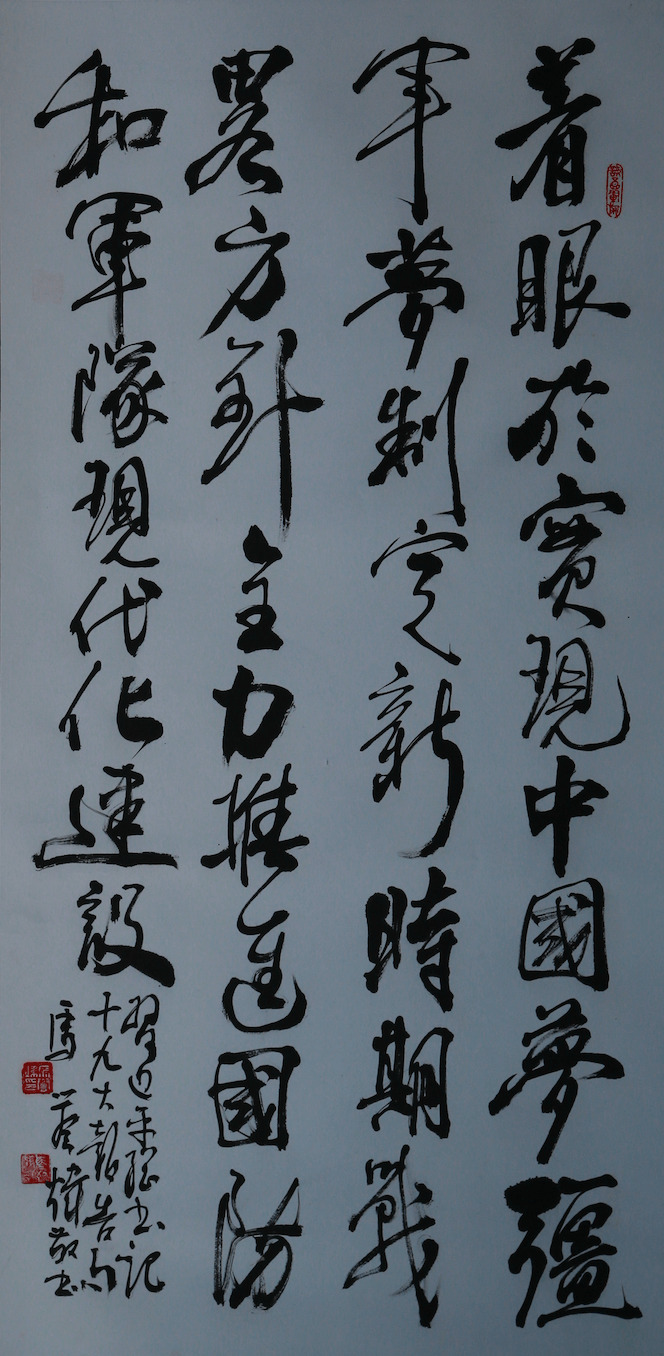 着眼於實現中國夢彊
军夢制定新時期戰
畧方針全力推進國防
和軍隊現代化建設
習近平總書記
十九大報告句
煒敬書